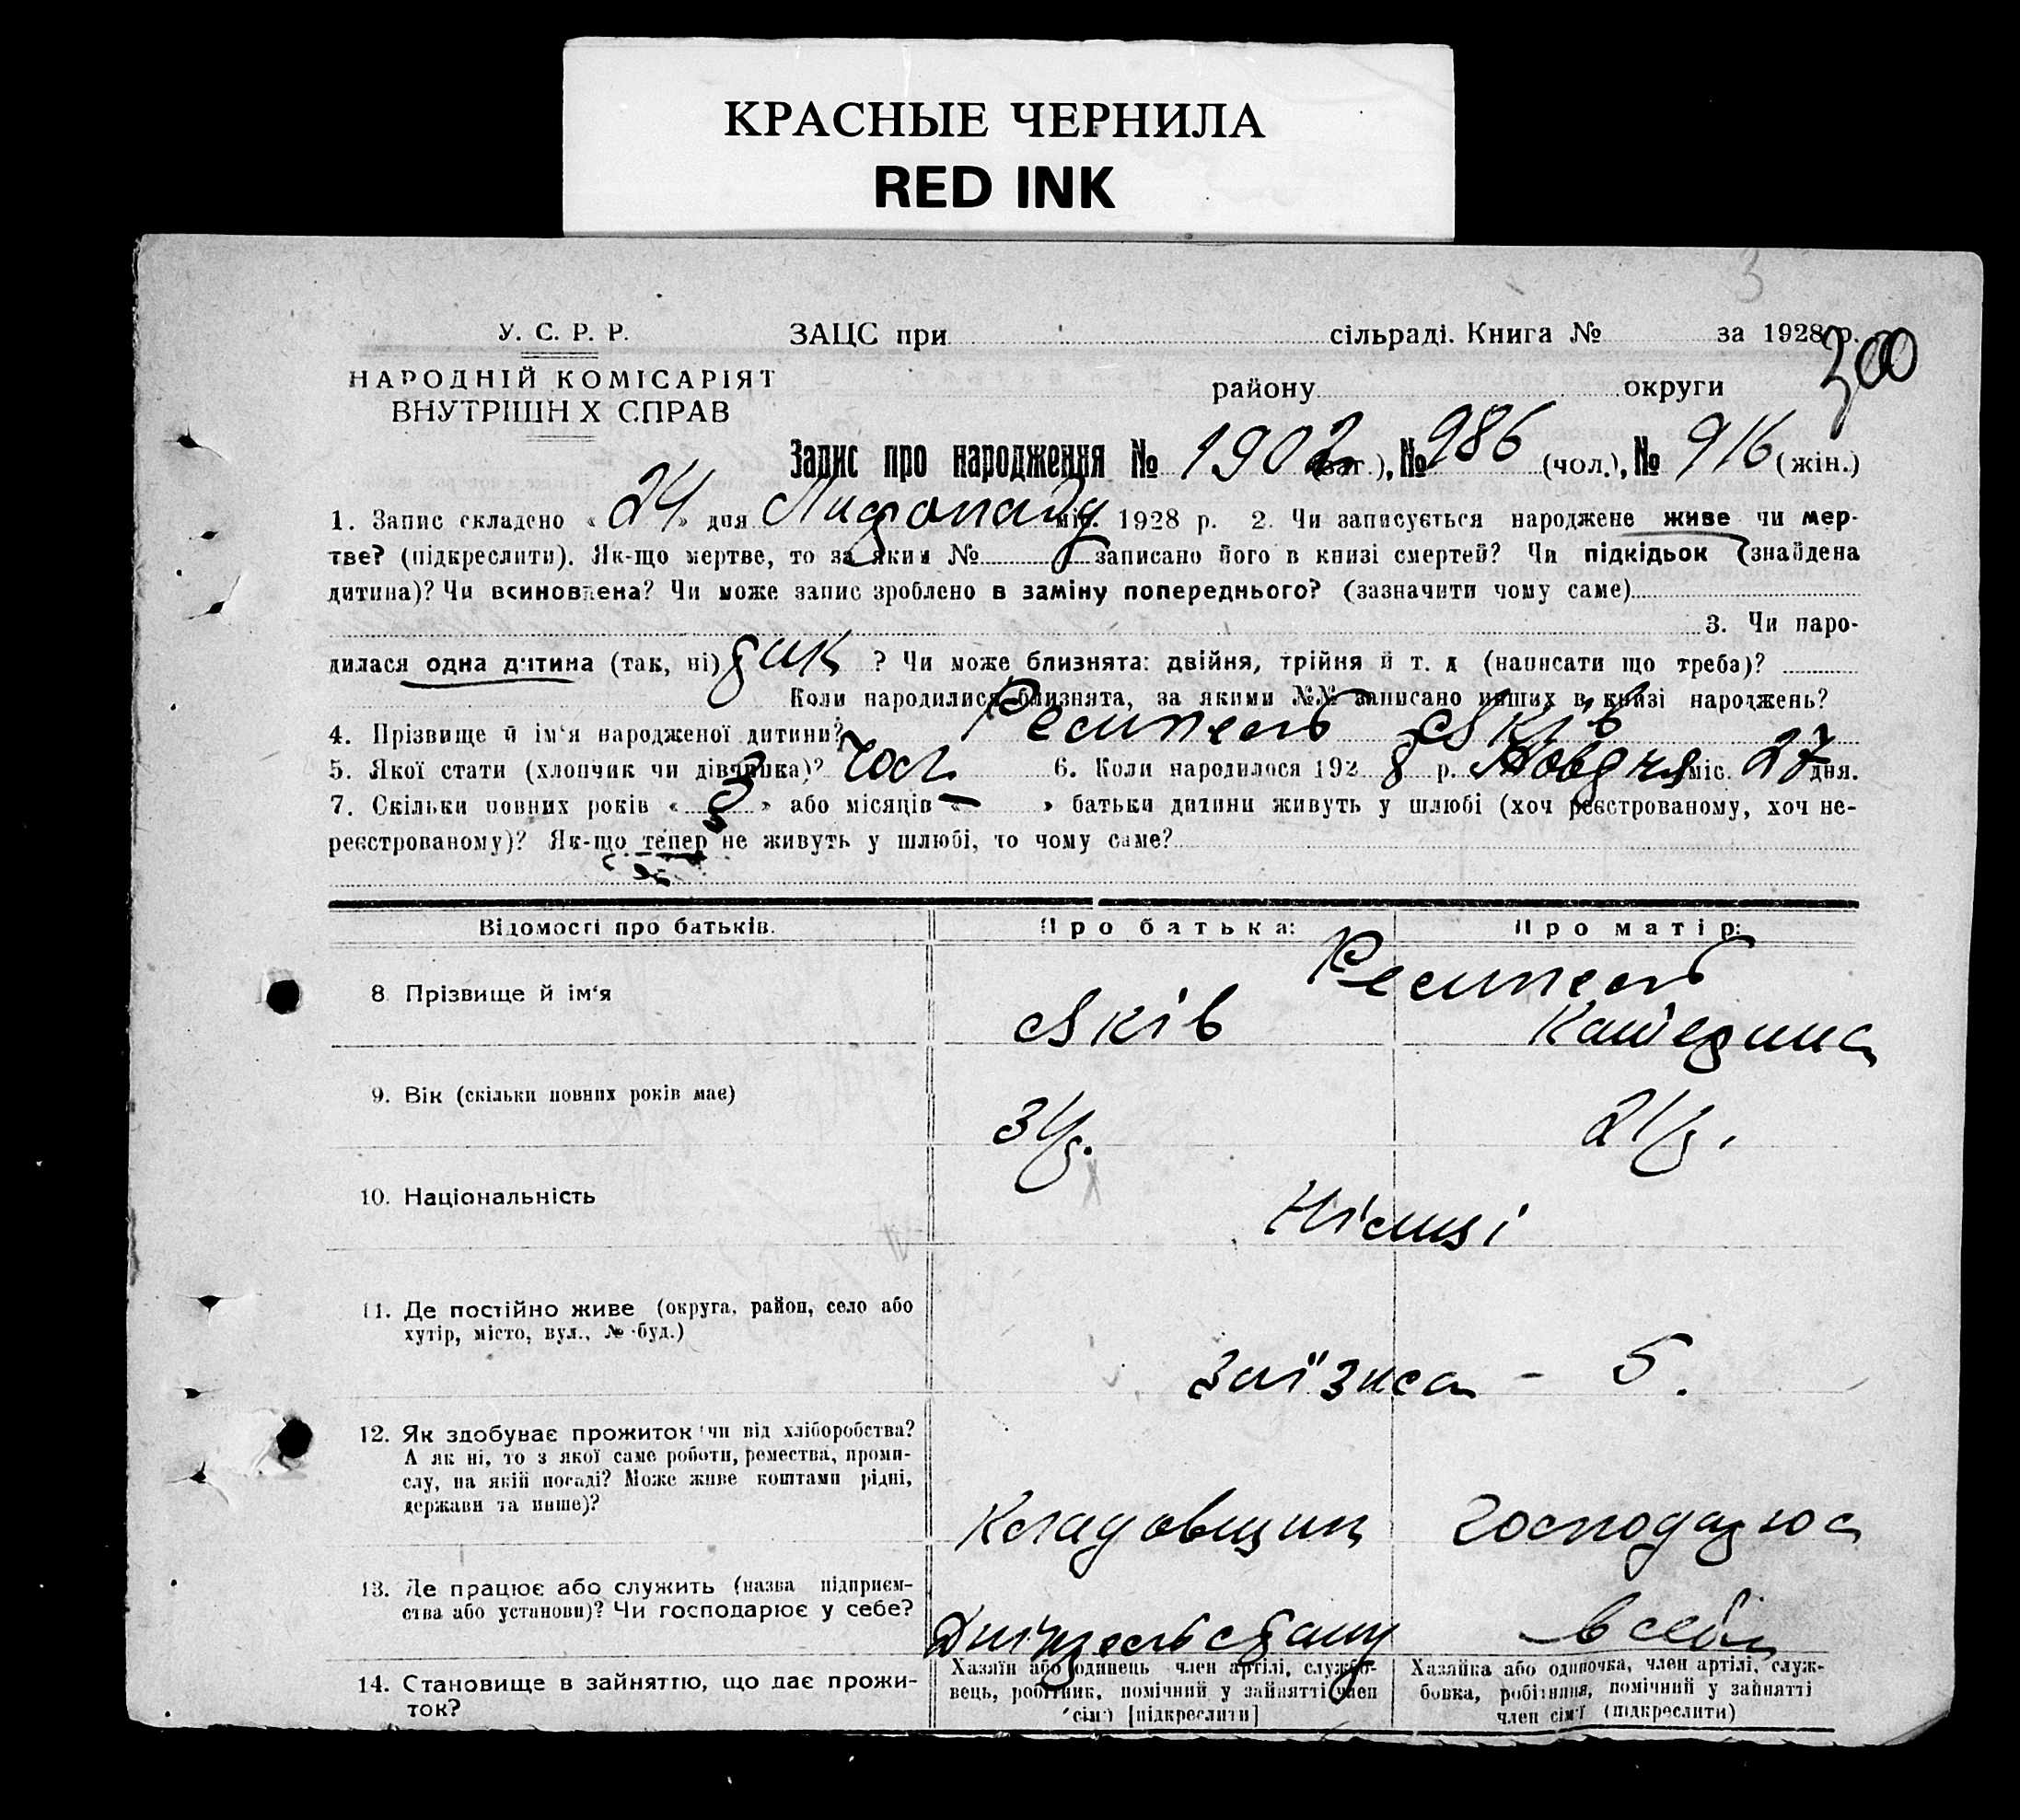 КРАСНЫЕ ЧЕРНИЛА
RED INK
3
У. С. Р. Р. ЗАЦС при сільраді. Книга № за 1928 р. 300
НАРОДНІЙ КОМІСАРІЯТ району округи
ВНУТРІШН Х СПРАВ
Запис про народження № 1902 (заг.), № 986 (чол.), № 916 (жін.)
1. Запис складено «24» дня Листопаду міс. 1928 р. 2. Чи записується народжене живе чи мер-
тве? (підкреслити). Як-що мертве, то за яким № записано його в книзі смертей? Чи підкідьок (знайдена
дитина)? Чи всиновлена? Чи може запис зроблено в заміну попереднього? (зазначити чому саме)
3. Чи наро-
дилася одна дитина (так, ні) так ? Чи може близнята: двійня, трійня й т. д (написати що треба)?
Коли народилися близнята, за якими №№ записано инших в книзі народжень?
4. Прізвище й ім'я народженої дитини? Яків
5. Якої стати (хлопчик чи дівчинка)? Чол. 6. Коли народилося 1928 р. Жовтня міс. 27 дня.
7. Скільки повних років «3» або місяців « — » батьки дитини живуть у шлюбі (хоч реєстрованому, хоч не-
реєстрованому)? Як-що тепер не живуть у шлюбі, то чому саме?
Відомості про батьків. Про батька: Про матір:
8 Прізвище й ім'я Яків Катерина
9. Вік (скільки повних років має) 31р. 21р.
10. Національність Німці
11. Де постійно живе (округа, район, село або
хутір, місто, вул., № буд.) 5.
12. Як здобуває прожиток чи від хліборобства?
А як ні, то з якої саме роботи, ремества, проми-
слу, на якій посаді? Може живе коштами рідні,
держави та инше)? Кладовщик господарює
13. Де працює або служить (назва підприєм-
ства або установи)? Чи господарює у себе? Дніпрельстану в себе
14. Становище в зайняттю, що дає прожи-
ток?
Хазяїн або одинець член артілі, службо-
вець, робітник, помічний у зайнятті член
сім'ї [підкреслити]
Хазяйка або одиночка, член артілі, служ-
бовка, робітниця, помічний у зайнятті
член сім'ї (підкреслити)